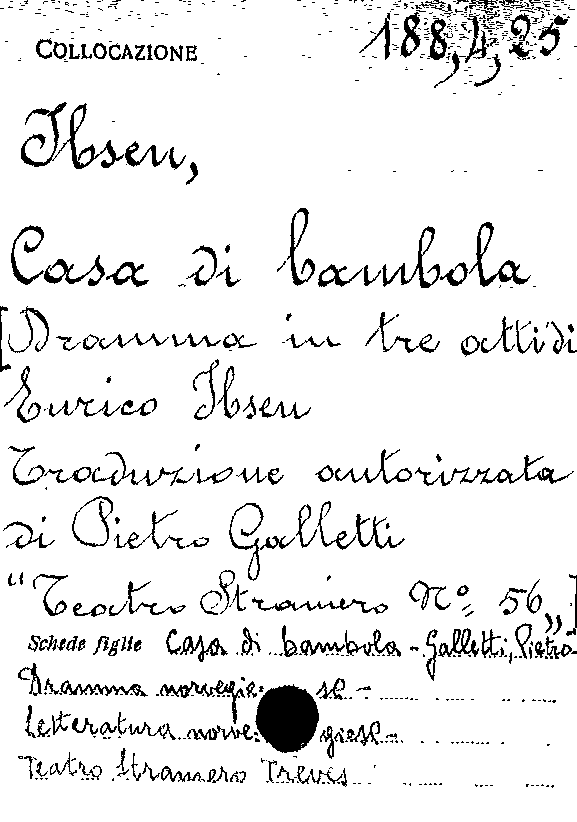 COLLOCAZIONE 188,4,25
Ibsen,
Casa di bambola
[Dramma in tre atti di
Enrico Ibsen
Traduzione autorizzata
di Pietro Galletti
“Teatro Straniero Nº 56„]
Schede figlie Casa di bambola - Galletti, Pietro -
Dramma norvegese -
Letteratura norvegese -
Teatro Straniero Treves